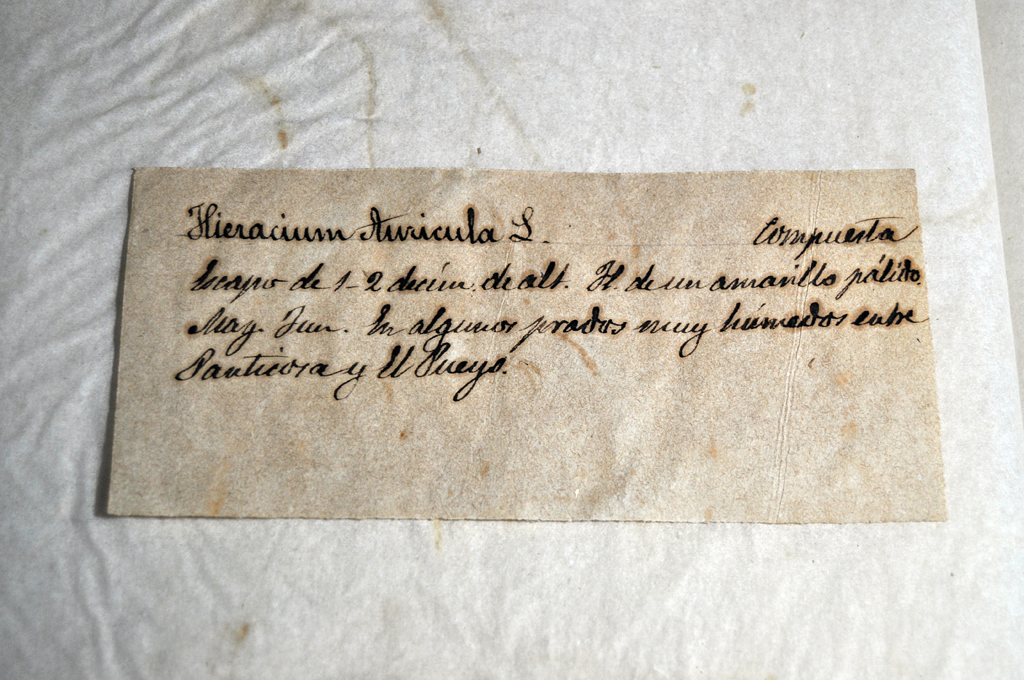 Hieracium Auricula L. Compuesta
Escapo de 1-2 decím. de alt. Fl. de un amarillo pálido.
May. Jun. En algunos prados muy húmedos entre
Panticosa y El Pueyo.